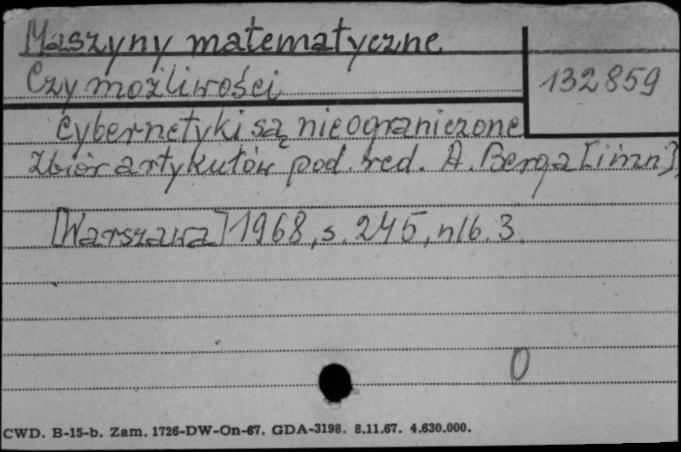 Maszyny matematyczne
Czy możliwości
132859
cybernetyki są nieograniczone
Zbiór artykułów pod red. A. Berga [i inn.],
[Warszawa] 1968, s. 245, nlb. 3.
0
CWD. B-15-b. Zam. 1726-DW-On-67. GDA-3198. 8.11.67. 4.630.000.